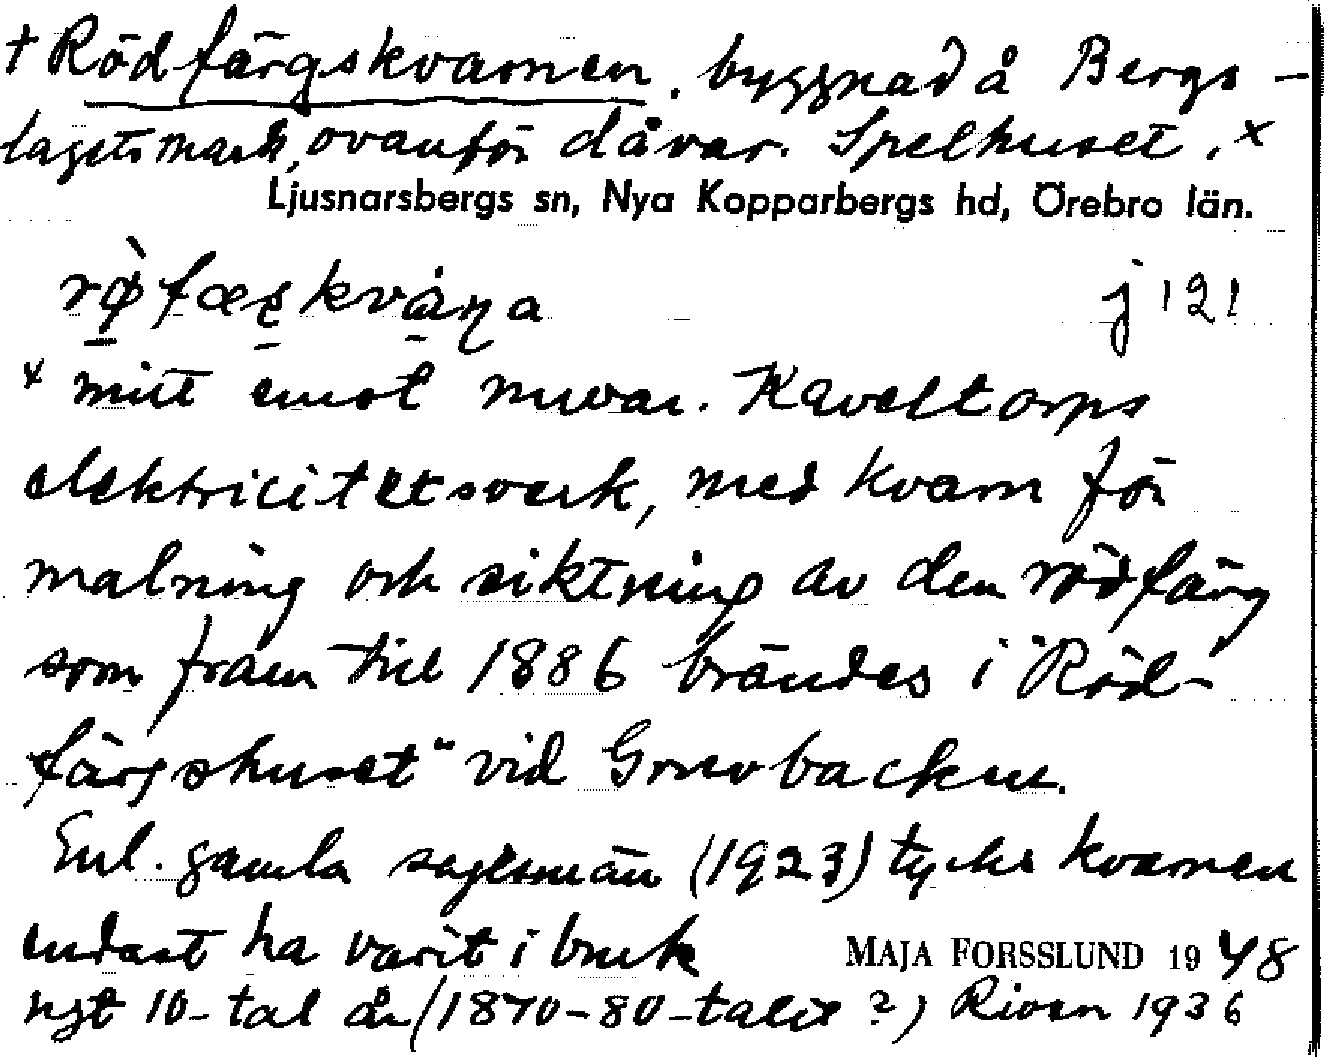 † Rödfärgskvarnen, byggnad å Bergs-
lagets mark, ovanför dåvar. Spelhuset, x
Ljusnarsbergs sn, Nya Kopparbergs hd, Örebro län.
j 121
x mitt emot nuvar. Kaveltorps
elektricitetsverk, med kvarn för
malning och siktning av den rödfärg
som fram till 1886 brändes i "Röd-
färgshuset" vid Gruvbacken.
Enl. gamla sagesmän (1923) tycks kvarnen
endast ha varit i bruk
MAJA FORSSLUND 1948
ngt 10-tal år (1870-80-talet?) Riven 1936